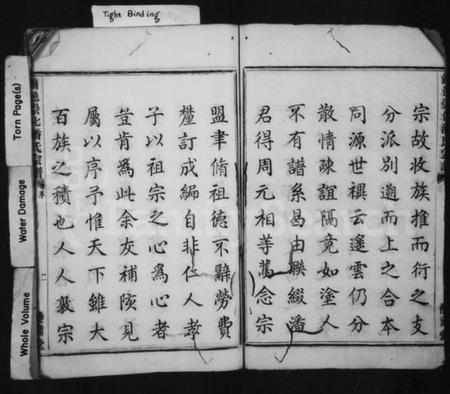 Tight Binding
Torn Page(s)
Water Damage
Whole Volume
宗故收族推而衍之支
分派別遡而上之合本
同源世禩云遙雲仍分
散情疎誼隔竟如塗人
不有譜系曷由聯綴潘
君得周元相等萬念宗
盟聿脩祖德不辭勞費
釐訂成編自非仁人孝
子以祖宗之心為心者
豈肯為此余友補陔見
屬以序予惟天下雖大
百族之積也人人敦宗